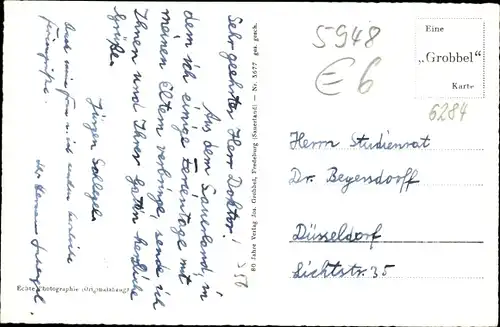 Sehr geehrter Herr Doktor!
Aus dem Sauerland, in
dem ich einige Ferientage mit
meinen Eltern verbringe, sende ich
Ihnen und Ihrer Gattin herzliche
Grüße.
Jürgen Schlegel.
Echte Photographie (Originalabzug)
80 Jahre Verlag Jos. Grobbel, Fredeburg (Sauerland) — Nr. 3677 ges. gesch.
5948
€6
Eine
„Grobbel“
Karte
6284
Herrn Studienrat
Dr. Begersdorff
Düsseldorf
Lichtstr. 35